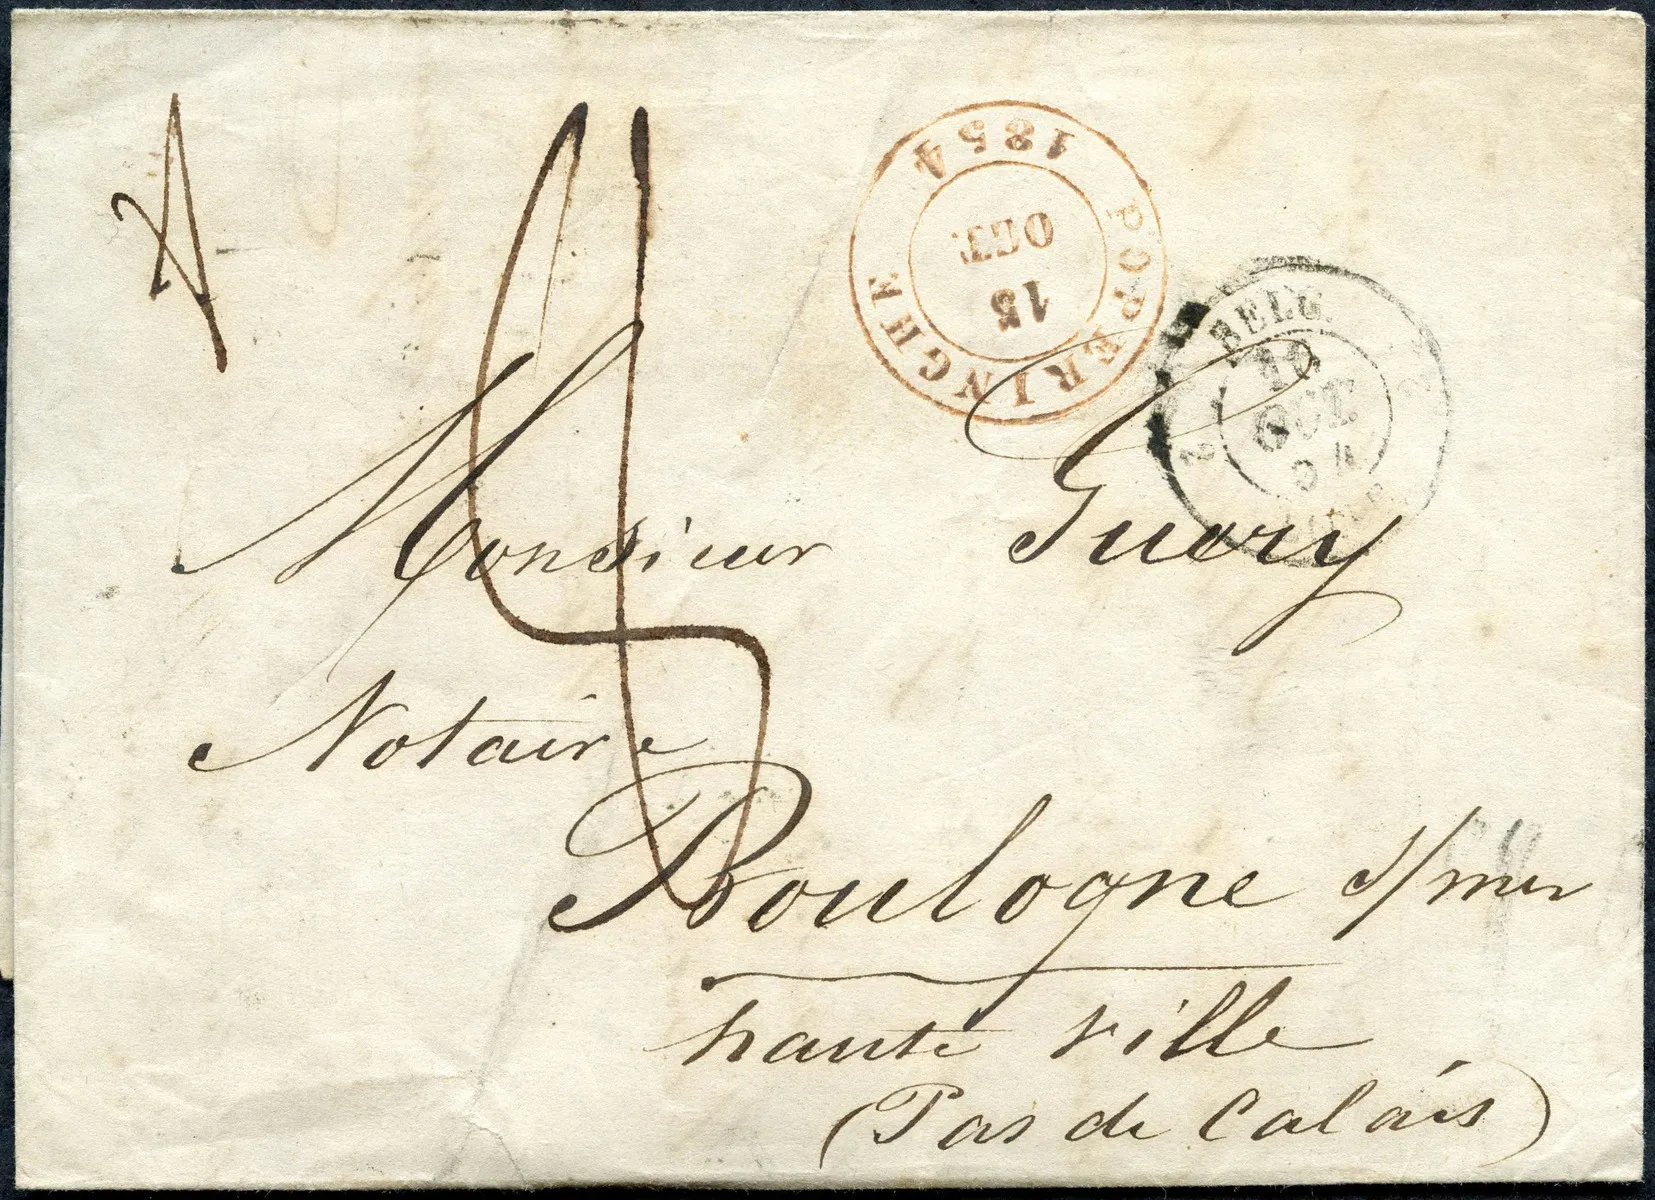 POPERINGHE
1854
15
OCT.
BELG.
OCT.
Monsieur Guery
Notaire
Boulogne s/mer
haute ville
(Pas de Calais)